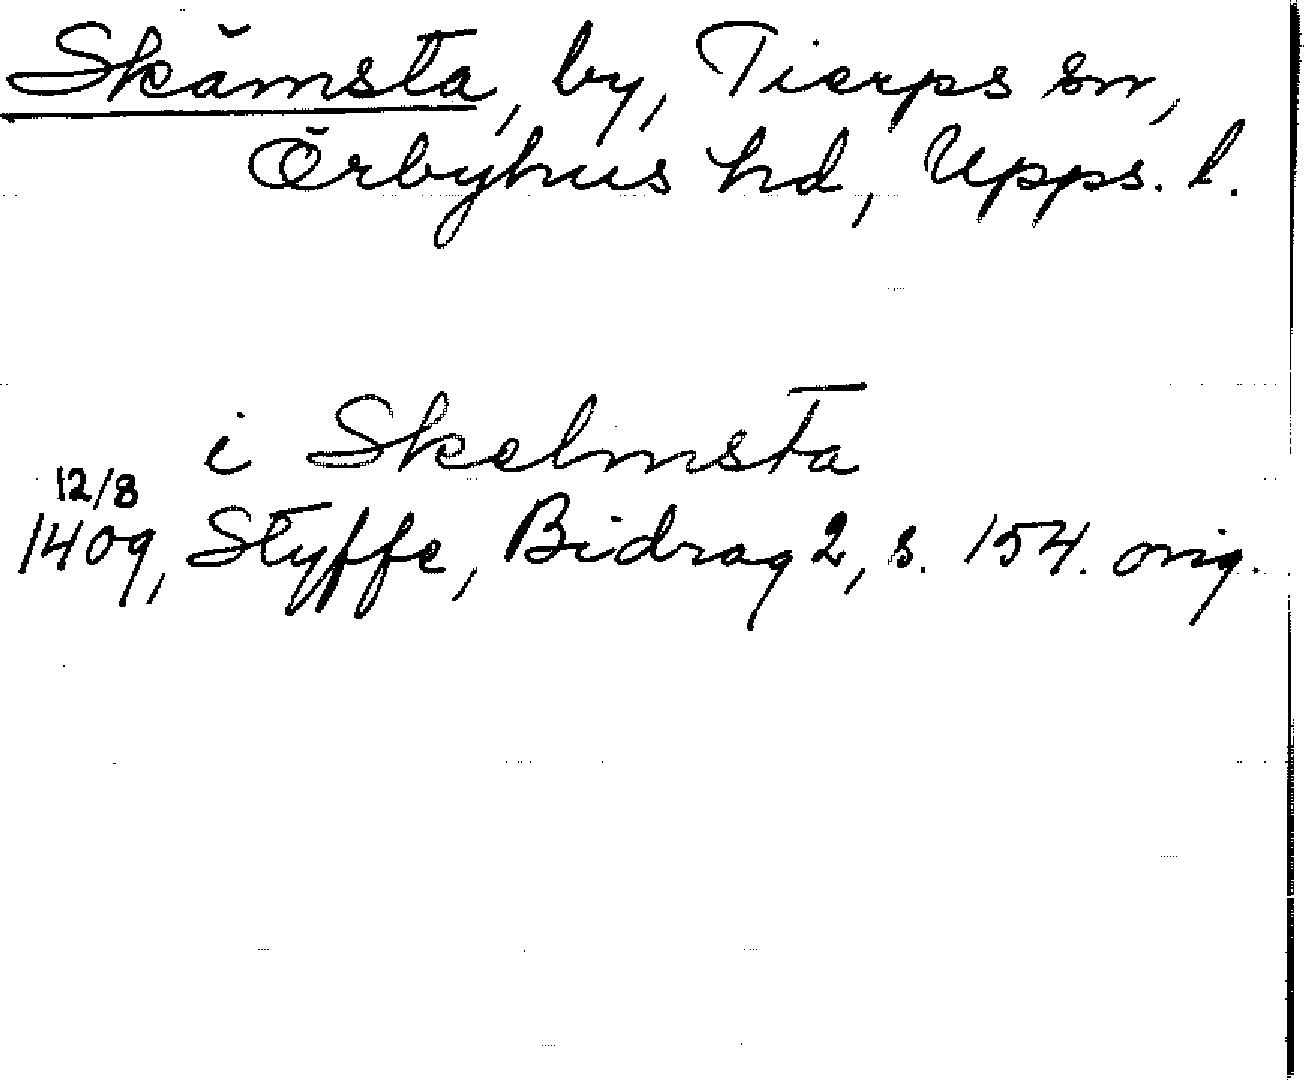 Skämsta, by, Tierps sn,
Örbyhus hd, Upps. l.
i Skelmsta
12/8
1409, Styffe, Bidrag 2, s. 154. orig.